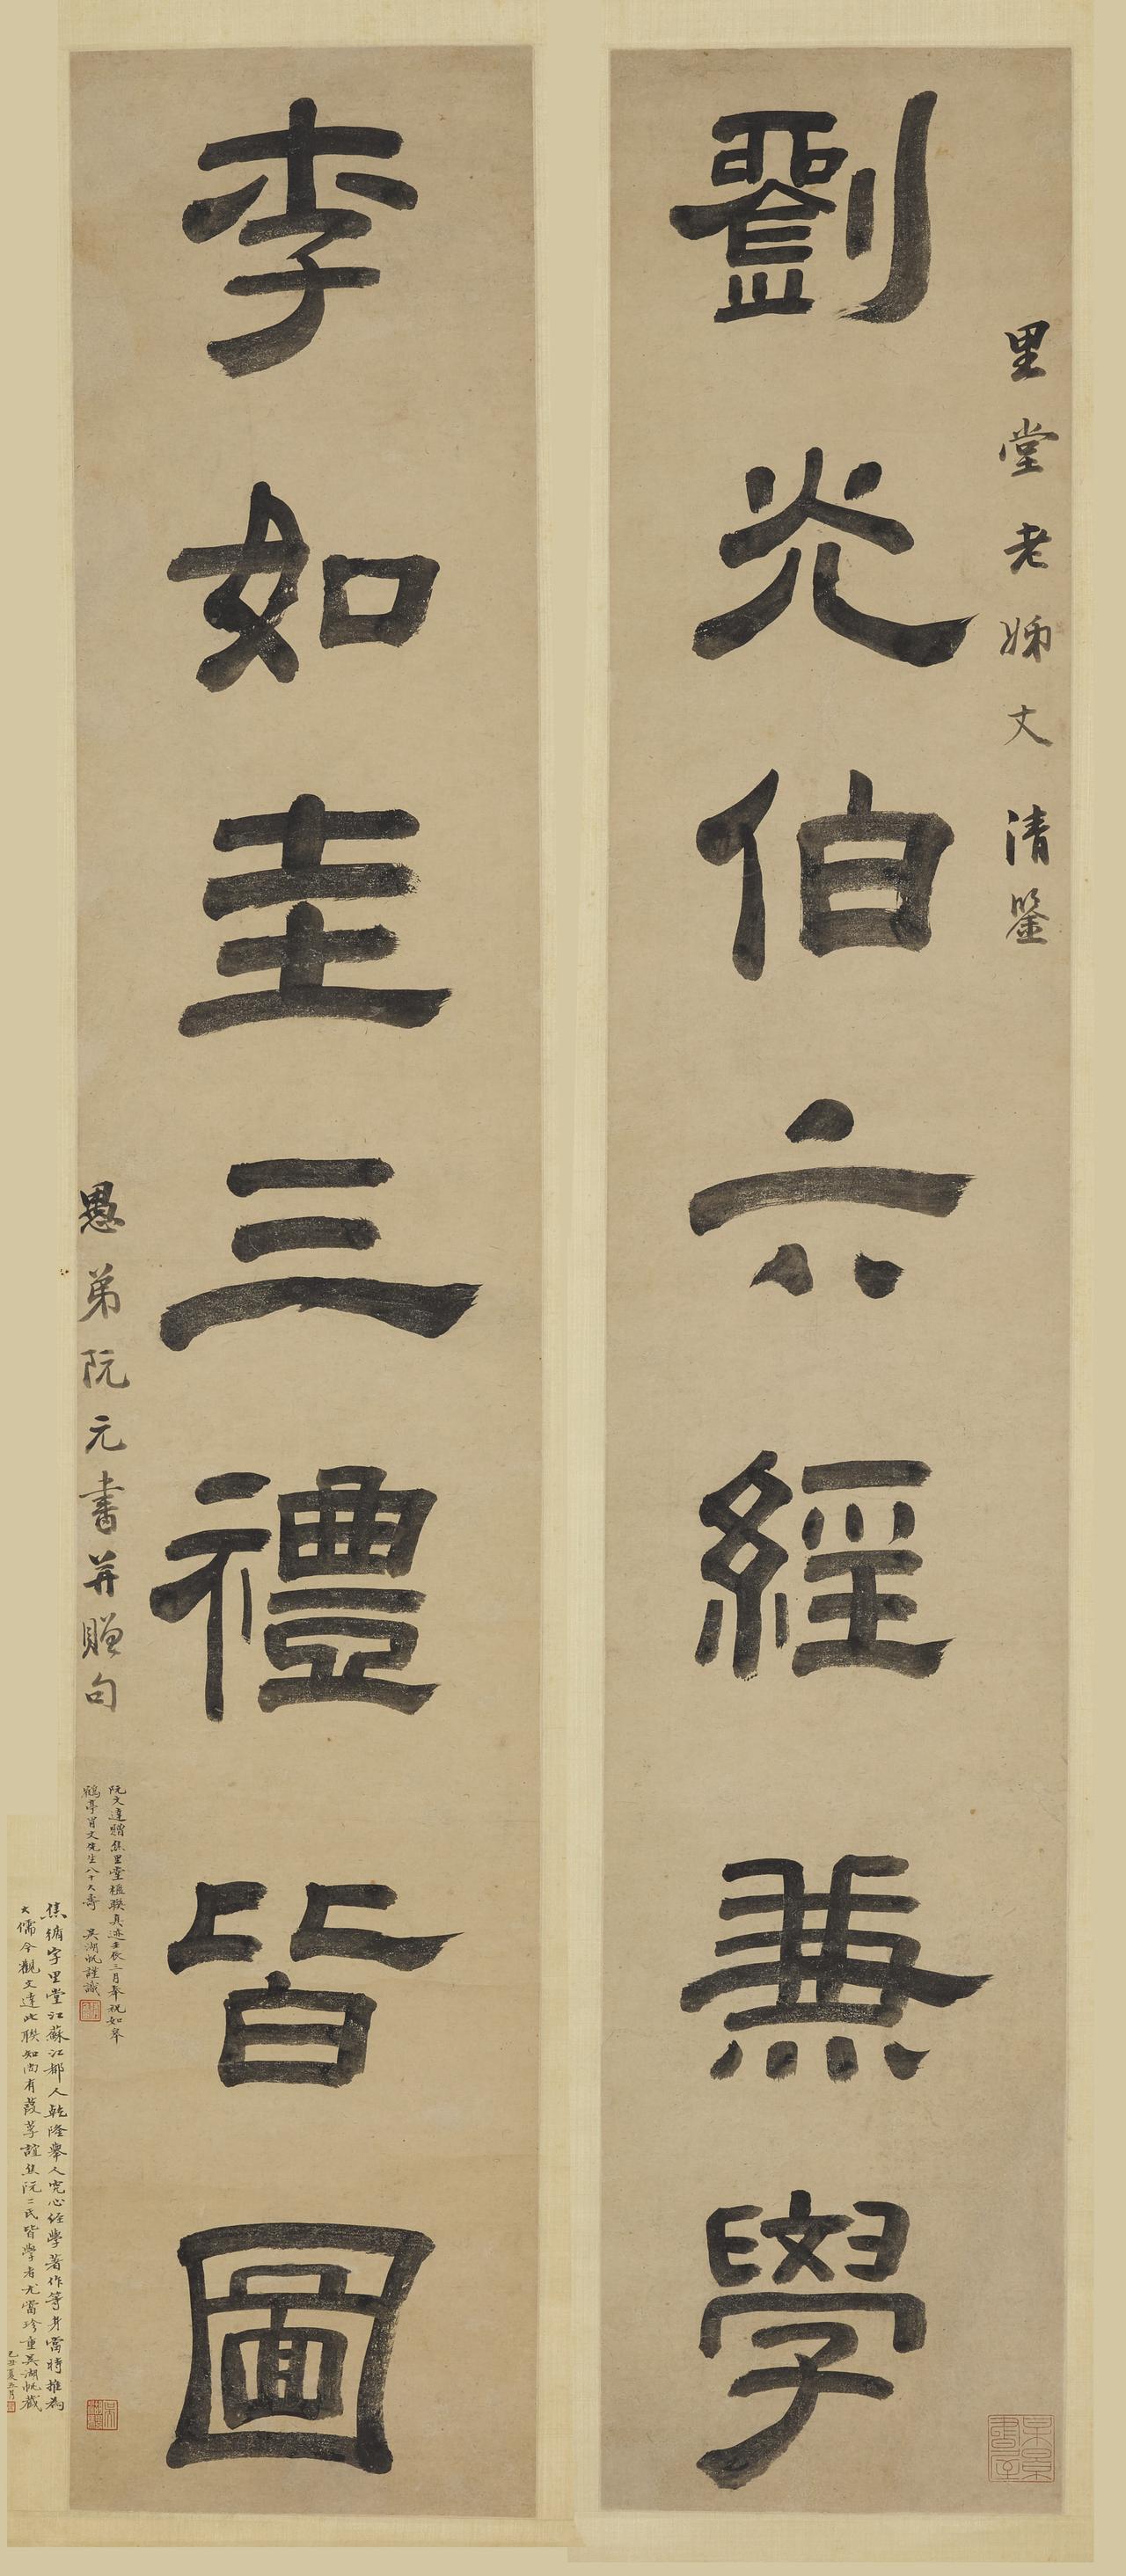 里堂老姊丈清鑒
劉光伯六經兼學
李如圭三禮皆圖
愚弟阮元書并贈句
阮文達贈焦里堂楹聯真迹壬辰三月奉祝如皋
鶴亭冒丈先生八十大壽 吳湖帆謹識
焦循字里堂江蘇江都人乾隆舉人究心經學著作等身當時推為
大儒今觀文達此聯知尚有葭莩誼焦阮二氏皆學者尤當珍重吳湖帆藏